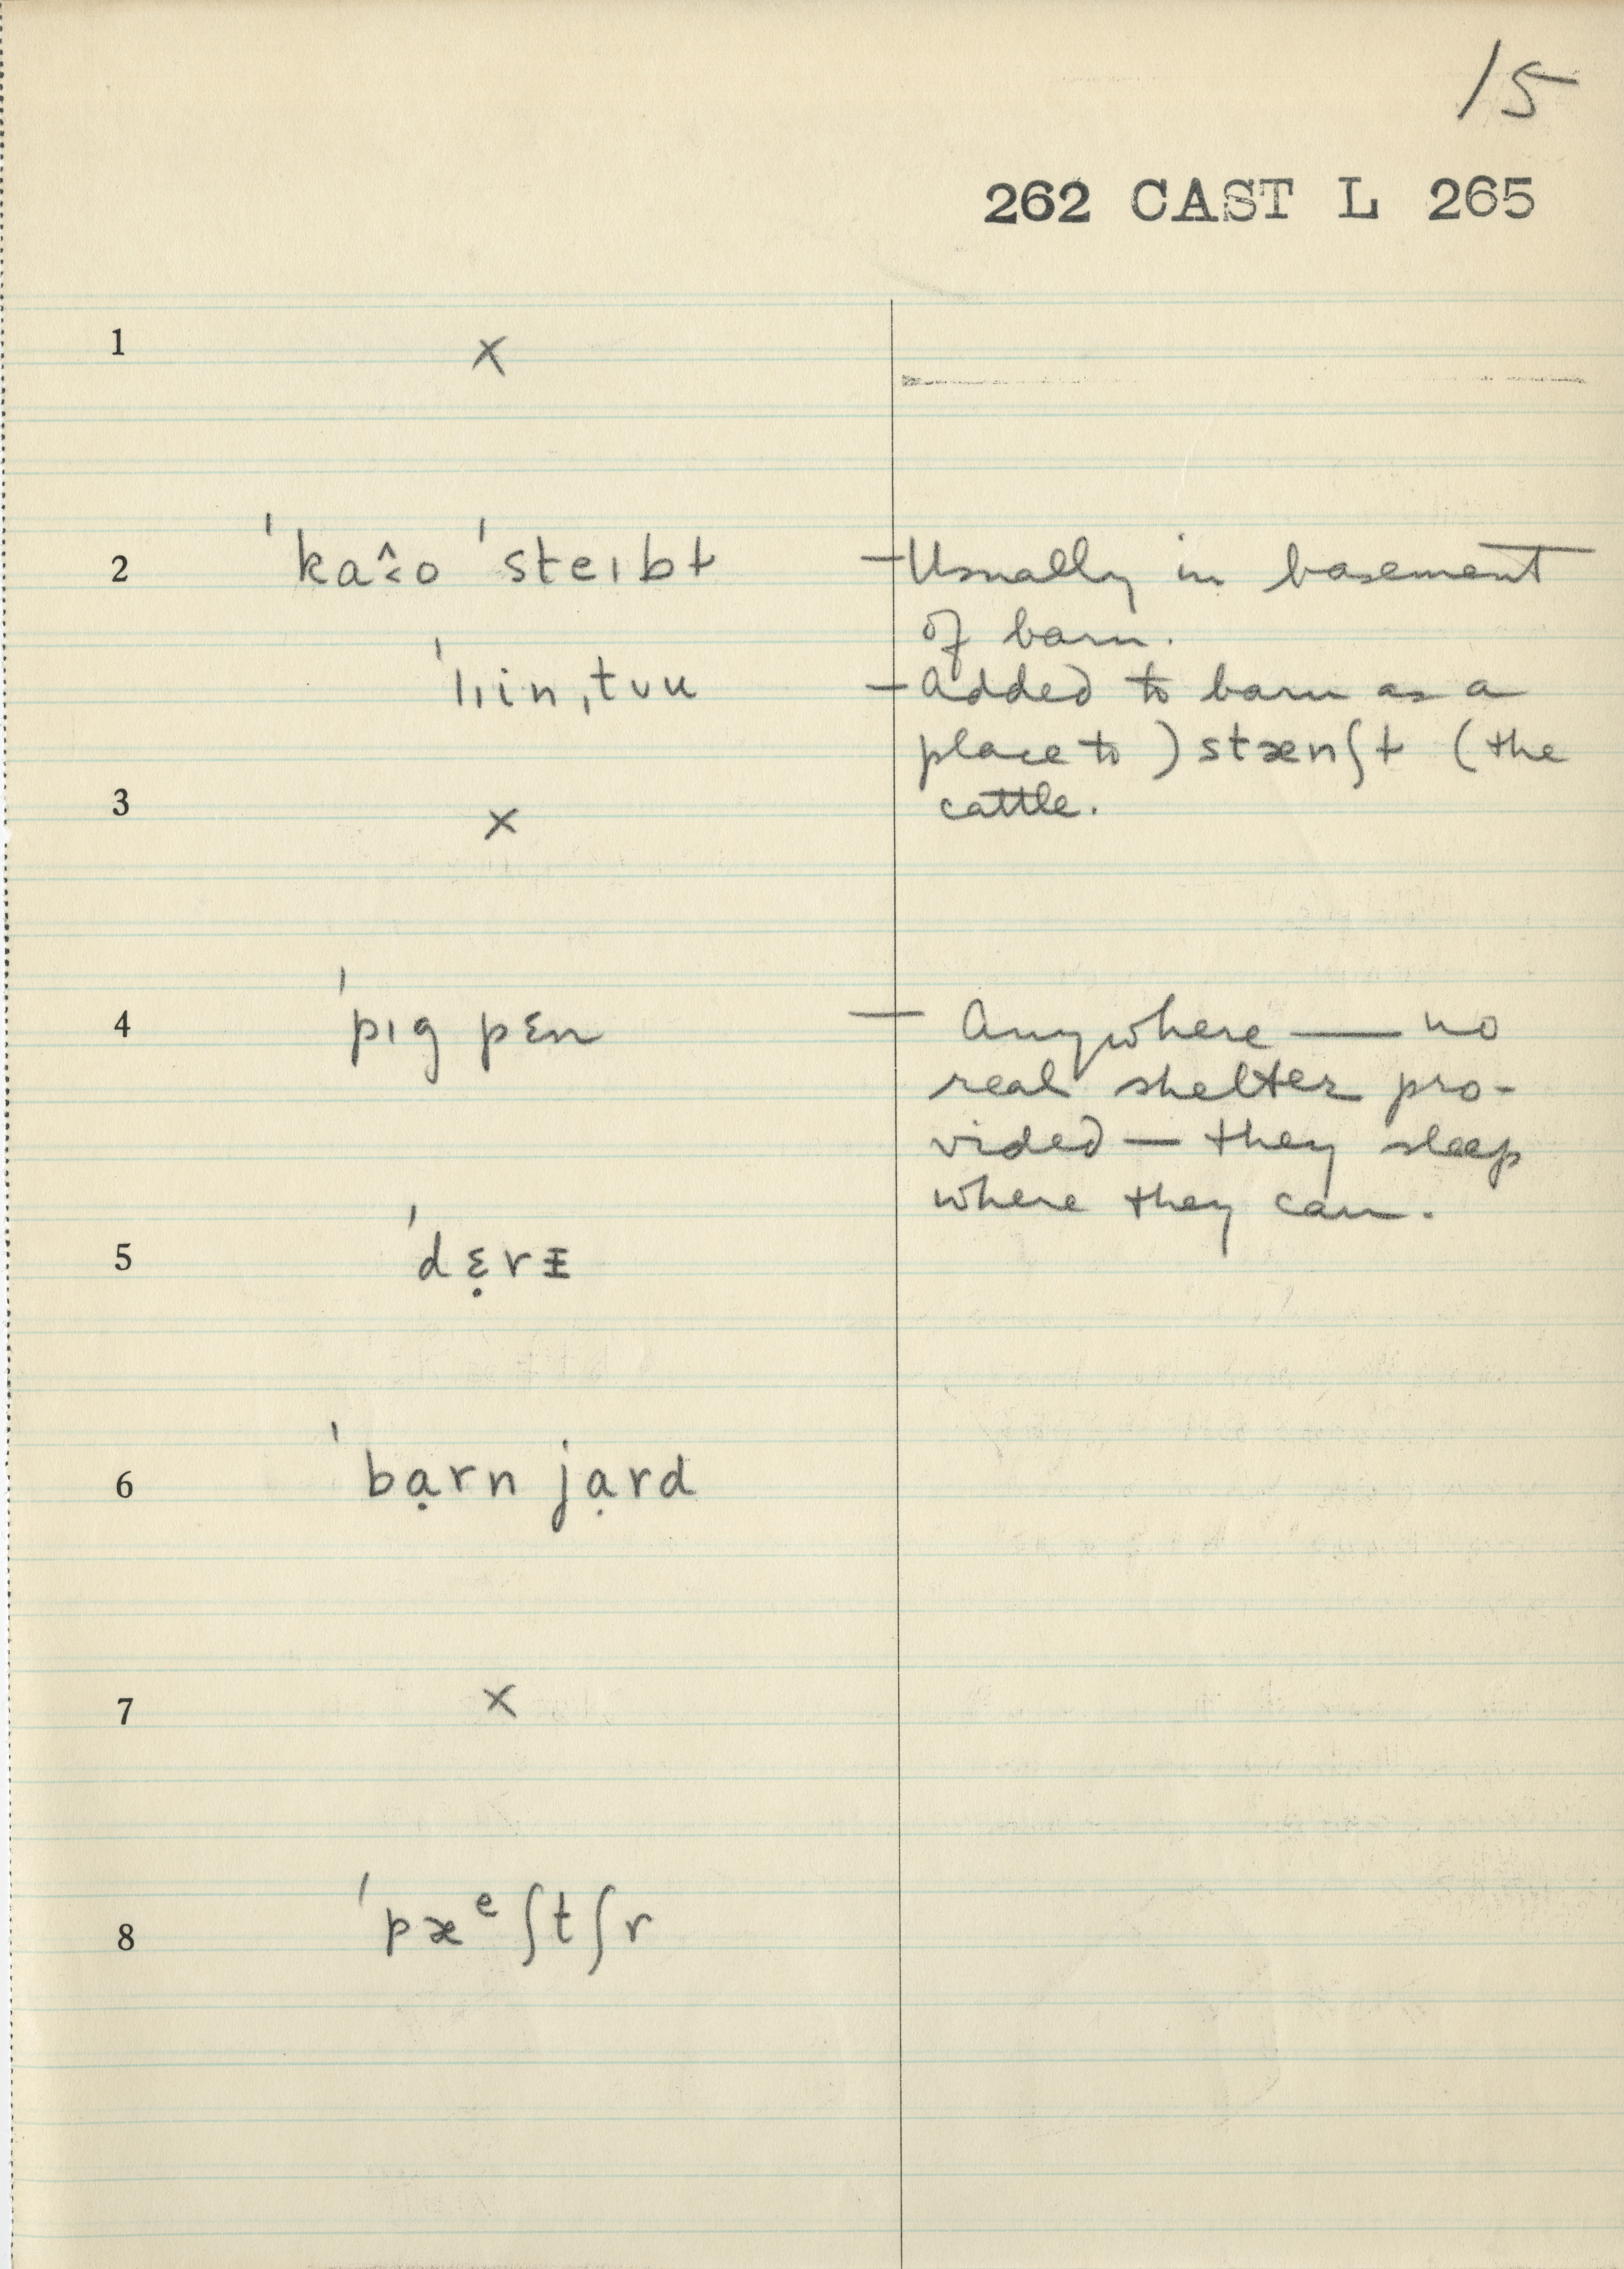 15
262 CAST L 265
1 x
2 ˈkaꞈ˂o ˈsteɪbɫ – Usually in basement
of barn.
ˈlɪinˌtʊu – Added to barn as a
place to ) stænʃɫ ( the
3 x cattle.
4 ˈpɪg pɛn – Anywhere — no
real shelter pro-
vided — they sleep
where they can.
5 ˈdɛ̣rᵻ
6 ˈbạrn jạrd
7 x
8 ˈpæᵉʃtʃr